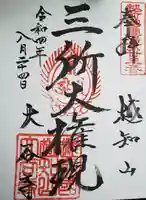 奉拝
越知山
三所大権現
大谷寺
令和四年
八月二十四日